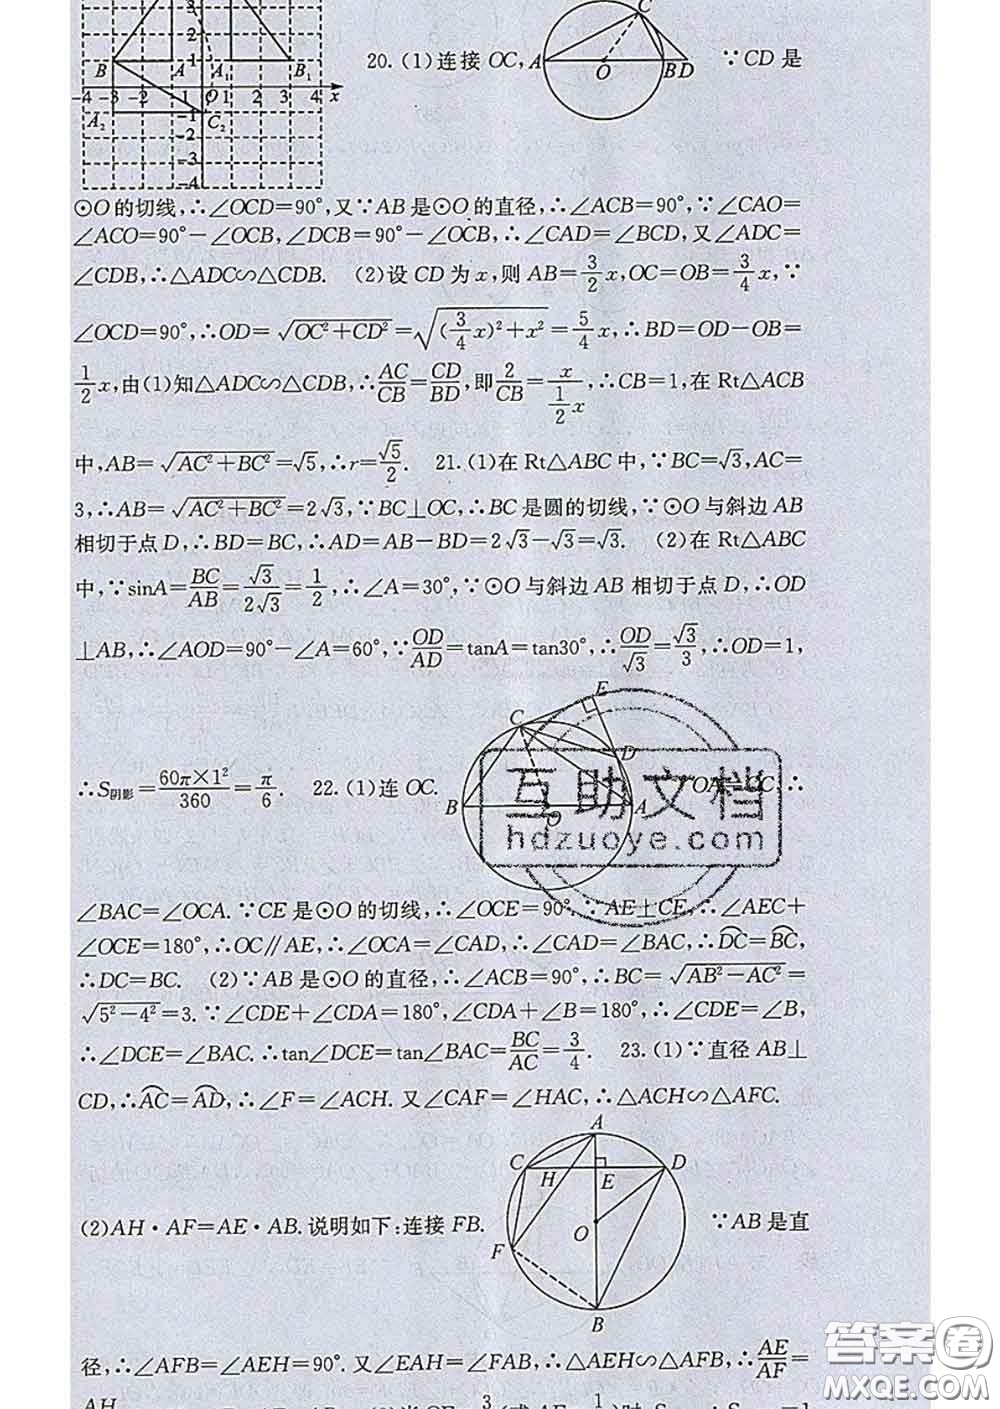 20. (1)连接 OC, ∵CD 是
⊙O 的切线,∴∠OCD=90°,又∵AB 是⊙O 的直径,∴∠ACB=90°,∵∠CAO=
∠ACO=90°-∠OCB,∠DCB=90°-∠OCB,∴∠CAD=∠BCD,又∠ADC=
∠CDB,∴△ADC∽△CDB. (2)设 CD 为 x,则 AB=3/2x,OC=OB=3/4x,∵
∠OCD=90°,∴OD=√(OC²+CD²)=√((3/4x)²+x²)=5/4x,∴BD=OD-OB=
1/2x,由(1)知△ADC∽△CDB,∴AC/CB=CD/BD,即2/CB=x/(1/2x),∴CB=1,在 Rt△ACB
中,AB=√(AC²+BC²)=√5,∴r=√5/2. 21. (1)在 Rt△ABC 中,∵BC=√3,AC=
3,∴AB=√(AC²+BC²)=2√3,∵BC⊥OC,∴BC 是圆的切线,∵⊙O 与斜边 AB
相切于点 D,∴BD=BC,∴AD=AB-BD=2√3-√3=√3. (2)在 Rt△ABC
中,∵sinA=BC/AB=√3/2√3=1/2,∴∠A=30°,∵⊙O 与斜边 AB 相切于点 D,∴OD
⊥AB,∴∠AOD=90°-∠A=60°,∵OD/AD=tanA=tan30°,∴OD/√3=√3/3,∴OD=1,
∴S阴影=60π×1²/360=π/6. 22. (1)连 OC. OA=OC,∴
∠BAC=∠OCA. ∵CE 是⊙O 的切线,∴∠OCE=90°,∵AE⊥CE,∴∠AEC+
∠OCE=180°,∴OC∥AE,∴∠OCA=∠CAD,∴∠CAD=∠BAC,∴DC⌒=BC⌒,
∴DC=BC. (2)∵AB 是⊙O 的直径,∴∠ACB=90°,∴BC=√(AB²-AC²)=
√(5²-4²)=3.∵∠CDE+∠CDA=180°,∠CDA+∠B=180°,∴∠CDE=∠B,
∴∠DCE=∠BAC.∴tan∠DCE=tan∠BAC=BC/AC=3/4. 23. (1)∵直径 AB⊥
CD,∴AC⌒=AD⌒,∴∠F=∠ACH. 又∠CAF=∠HAC,∴△ACH∽△AFC.
(2)AH·AF=AE·AB. 说明如下:连接 FB. ∵AB 是直
径,∴∠AFB=∠AEH=90°. 又∠EAH=∠FAB,∴△AEH∽△AFB,∴AE/AF=
AH
B A A₁ B₁
-4 -3 -2 -1 O 1 2 3 4 x
A₂ C₂
3 2 1 -1 -2 -3 -4
A O B D C
B O A C D E
A C H E D O F B
互助文档
hdzuoye.com
答案圈
MXQE.COM